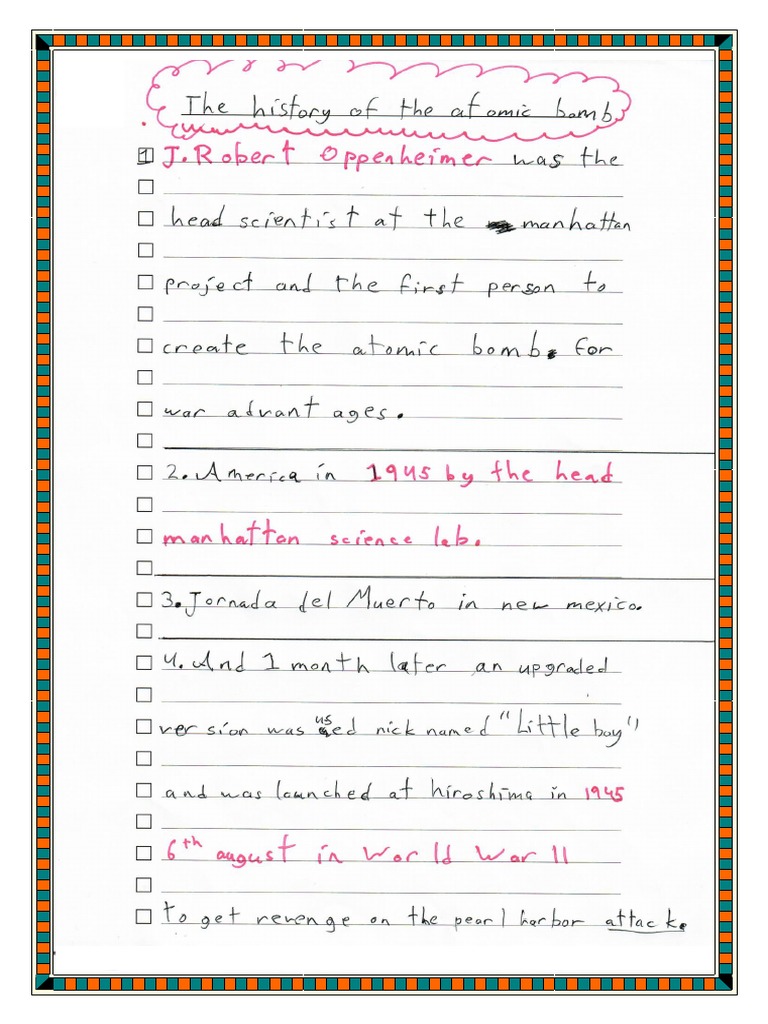 The history of the atomic bomb
1 J. Robert Oppenheimer was the
head scientist at the manhattan
project and the first person to
create the atomic bomb. for
war advantages.
2. America in 1945 by the head
manhattan science lab.
3. Jornada del Muerto in new mexico.
4. And 1 month later an upgraded
version was used nick named "Little boy"
and was launched at hiroshima in 1945
6th august in World War II
to get revenge on the pearl harbor attack.